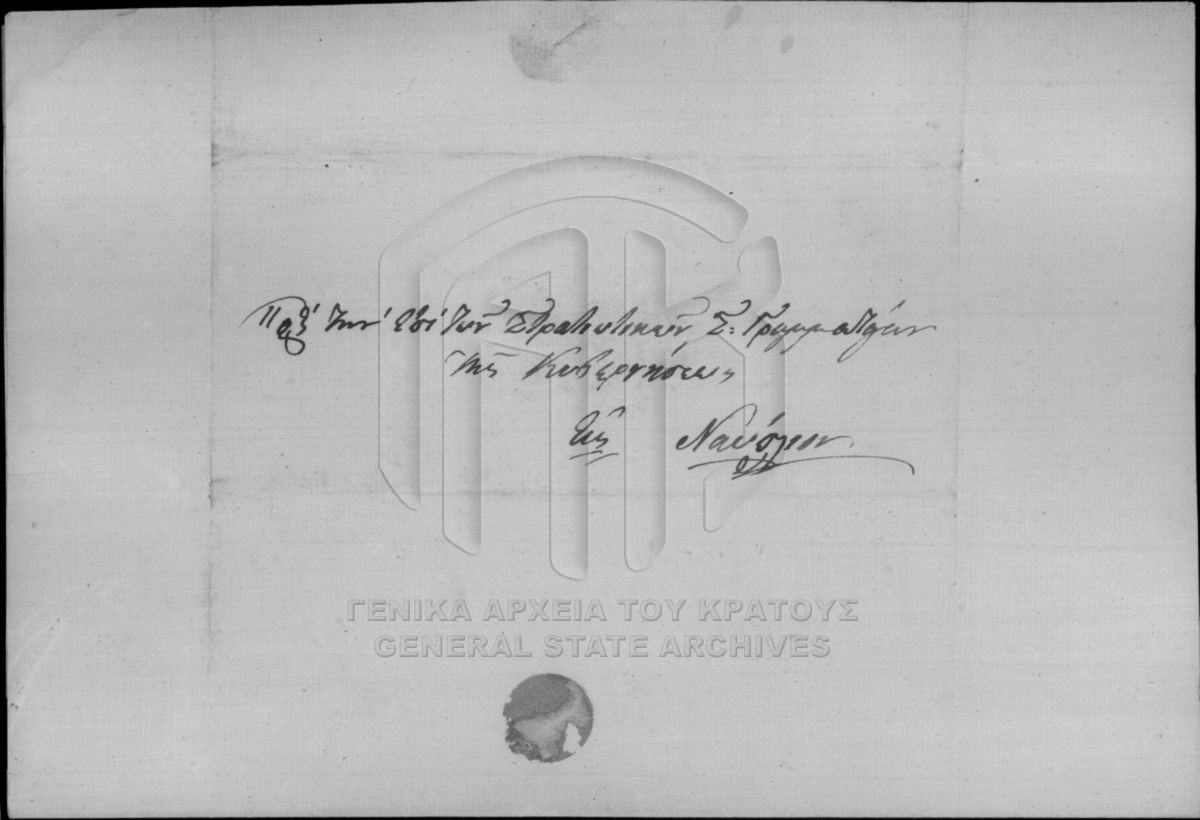 Πρὸς τὴν ἐπὶ τῶν Στρατιωτικῶν Σ: Γραμματείαν
τῆς Κυβερνήσεως
Εἰς Ναύπλιον
ΓΕΝΙΚΑ ΑΡΧΕΙΑ ΤΟΥ ΚΡΑΤΟΥΣ
GENERAL STATE ARCHIVES